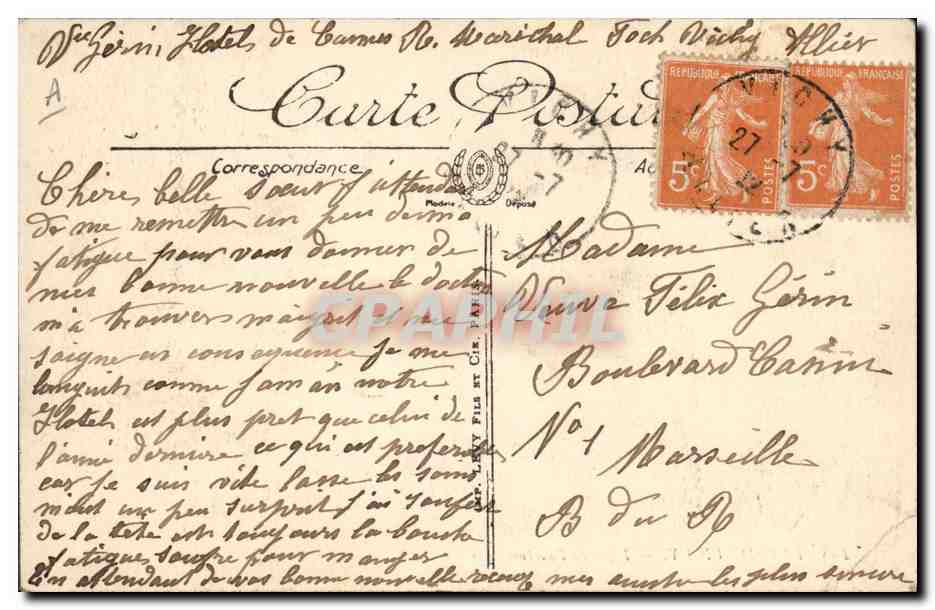 Vve Gérin Hotel de Cannes R. Maréchal Foch Vichy Allier
A
Carte Postale
Correspondance
Modèle Déposé
VICHY
27 -7
RÉPUBLIQUE FRANÇAISE
5c
POSTES
RÉPUBLIQUE FRANÇAISE
5c
POSTES
Chère belle soeur j'attendais
de me remettre un peu de ma
fatigue pour vous donner de
mes bonne nouvelle le docteur
m'a trouvers maigrit et me
soigne en consequence je me
languit comme jamais notre
Hotel est plus pret que celui de
l'année derniere ce qui est preferable
car je suis vite lasse les soins
m'ont un peu surprit j'ai soufert
de la tete est toujours la bouche
fatigue soufre pour manger
En attendant de vos bonne nouvelle recevez mes amitie les plus sincere
IMP. LEVY FILS ET CIE. PARIS
CPAPHIL
Madame
Veuve Félix Gérin
Boulevard
No 1
Marseille
B du R